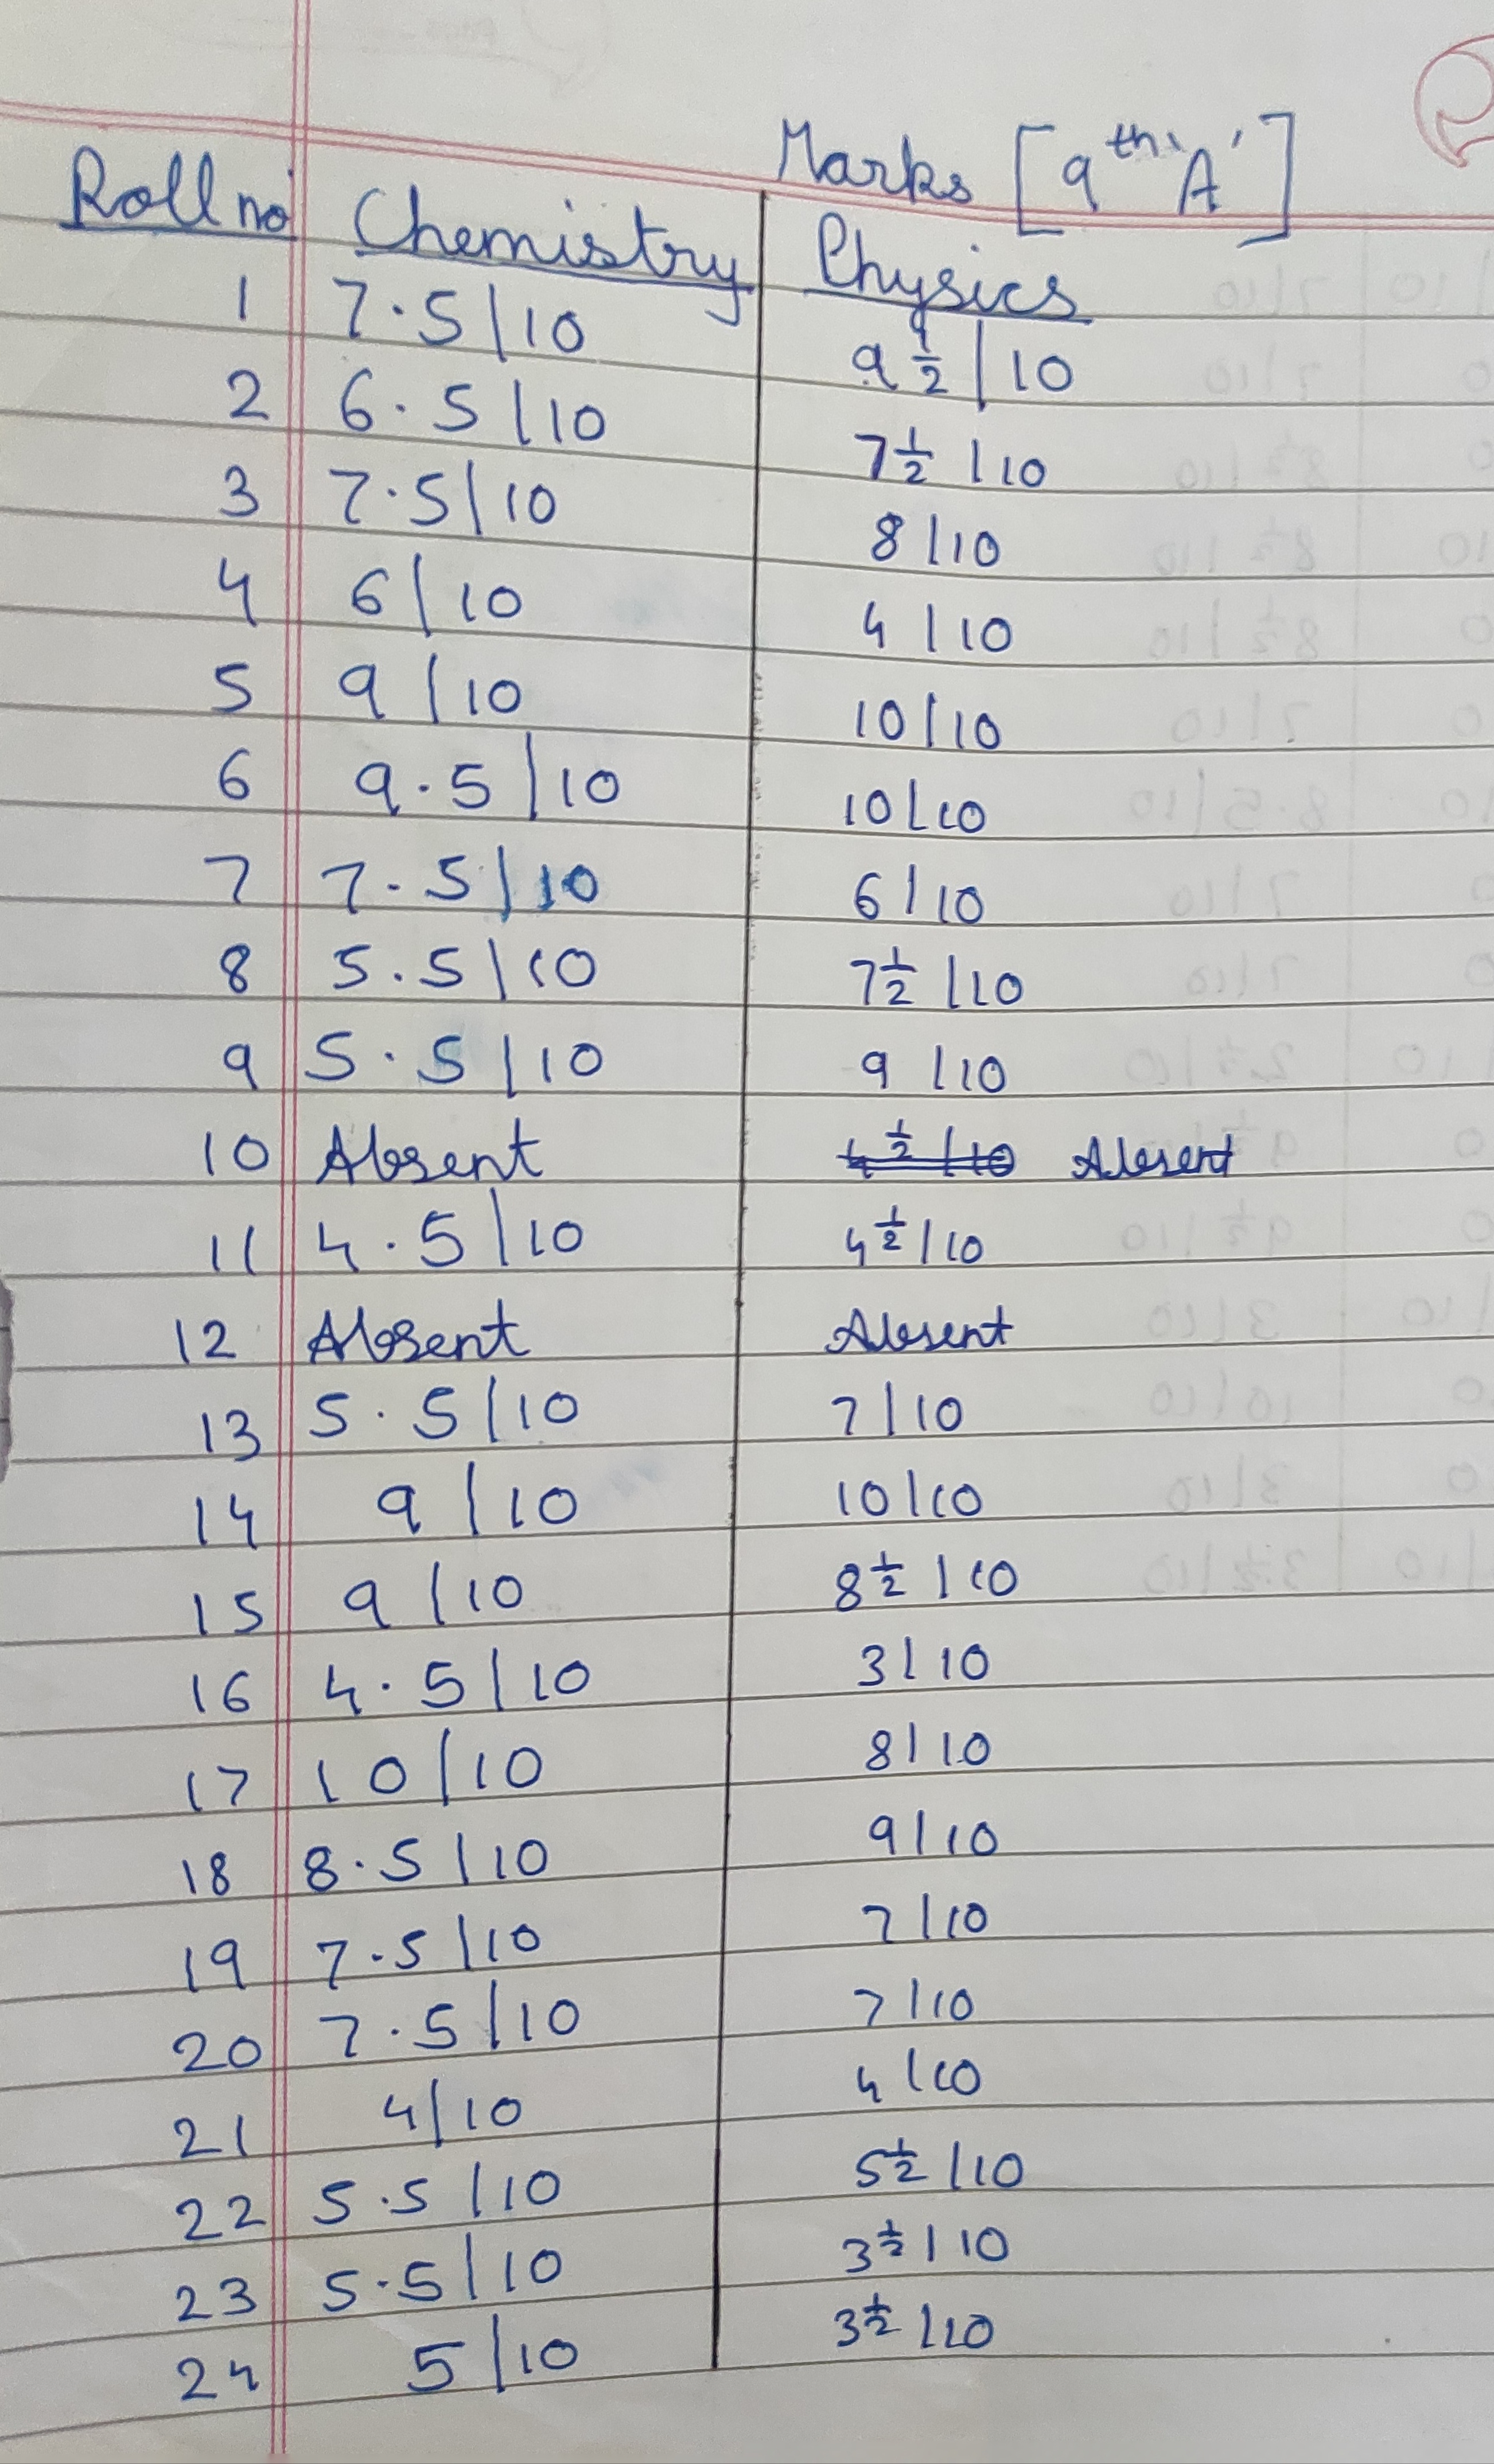 Marks [9th 'A']
Roll no Chemistry Physics
1 7.5/10 9 1/2 | 10
2 6.5/10 7 1/2 | 10
3 7.5/10 8/10
4 6/10 4/10
5 9/10 10/10
6 9.5/10 10/10
7 7.5/10 6/10
8 5.5/10 7 1/2 | 10
9 5.5/10 9/10
10 Absent 4 1/2 | 10 Absent
11 4.5/10 4 1/2 | 10
12 Absent Absent
13 5.5/10 7/10
14 9/10 10/10
15 9/10 8 1/2 | 10
16 4.5/10 3/10
17 10/10 8/10
18 8.5/10 9/10
19 7.5/10 7/10
20 7.5/10 7/10
21 4/10 4/10
22 5.5/10 5 1/2 | 10
23 5.5/10 3 1/2 | 10
24 5/10 3 1/2 | 10